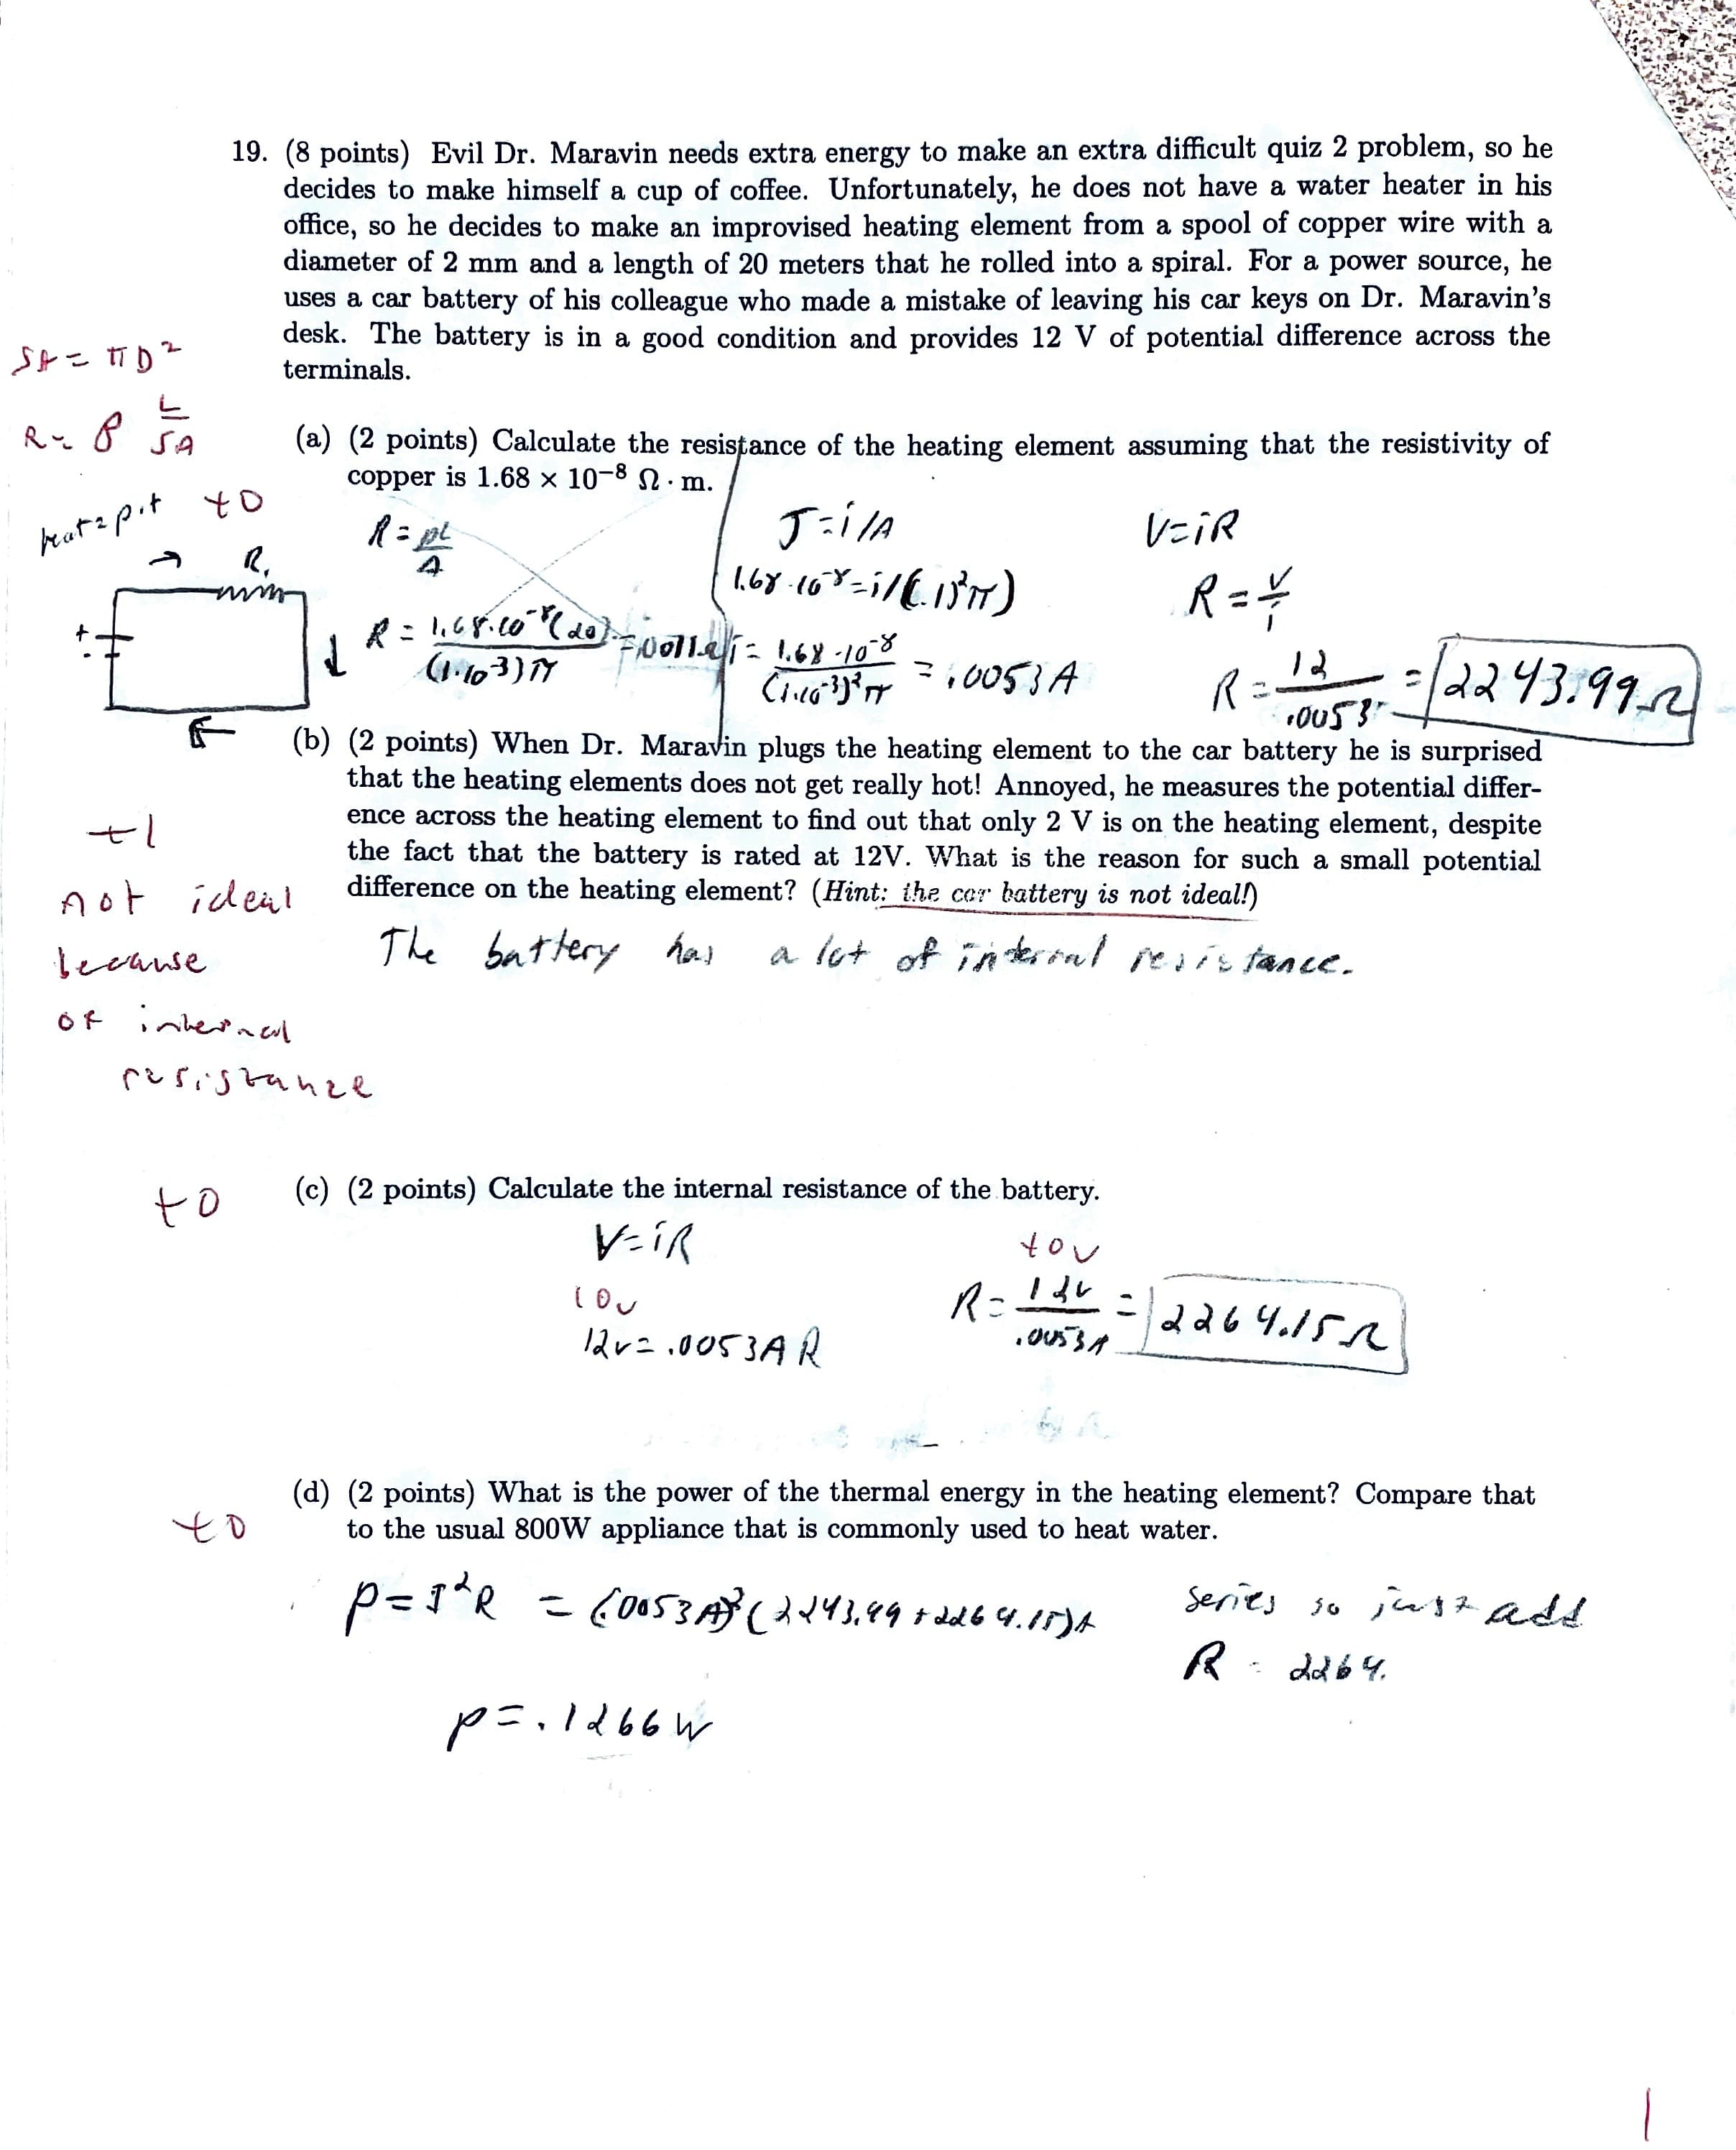 19. (8 points) Evil Dr. Maravin needs extra energy to make an extra difficult quiz 2 problem, so he
decides to make himself a cup of coffee. Unfortunately, he does not have a water heater in his
office, so he decides to make an improvised heating element from a spool of copper wire with a
diameter of 2 mm and a length of 20 meters that he rolled into a spiral. For a power source, he
uses a car battery of his colleague who made a mistake of leaving his car keys on Dr. Maravin's
desk. The battery is in a good condition and provides 12 V of potential difference across the
terminals.
SA = πD²
R = ρ L/SA
(a) (2 points) Calculate the resistance of the heating element assuming that the resistivity of
copper is 1.68 × 10⁻⁸ Ω · m.
+0
heat = p·t
R₁
+
-
R = ρL/A
R = 1.68·10⁻⁸(20)/(1·10⁻³)π
J = i/A
1.68·10⁻⁸ = i/(.1)²π)
i = 1.68·10⁻⁸/(1·10⁻³)²π = .0053A
V=iR
R = V/i
R = 12/.0053 = 2243.99Ω
(b) (2 points) When Dr. Maravin plugs the heating element to the car battery he is surprised
that the heating elements does not get really hot! Annoyed, he measures the potential differ-
ence across the heating element to find out that only 2 V is on the heating element, despite
the fact that the battery is rated at 12V. What is the reason for such a small potential
difference on the heating element? (Hint: the car battery is not ideal!)
The battery has a lot of internal resistance.
+1
not ideal
because
of internal
resistance
+0
(c) (2 points) Calculate the internal resistance of the battery.
V=iR
10v
12v = .0053A R
R = 12v/.0053A = 2264.15Ω
+0
(d) (2 points) What is the power of the thermal energy in the heating element? Compare that
to the usual 800W appliance that is commonly used to heat water.
P = I²R = (.0053A)²(2243.99 + 2264.15)
series so just add
R = 2264.
P = .1266W
1